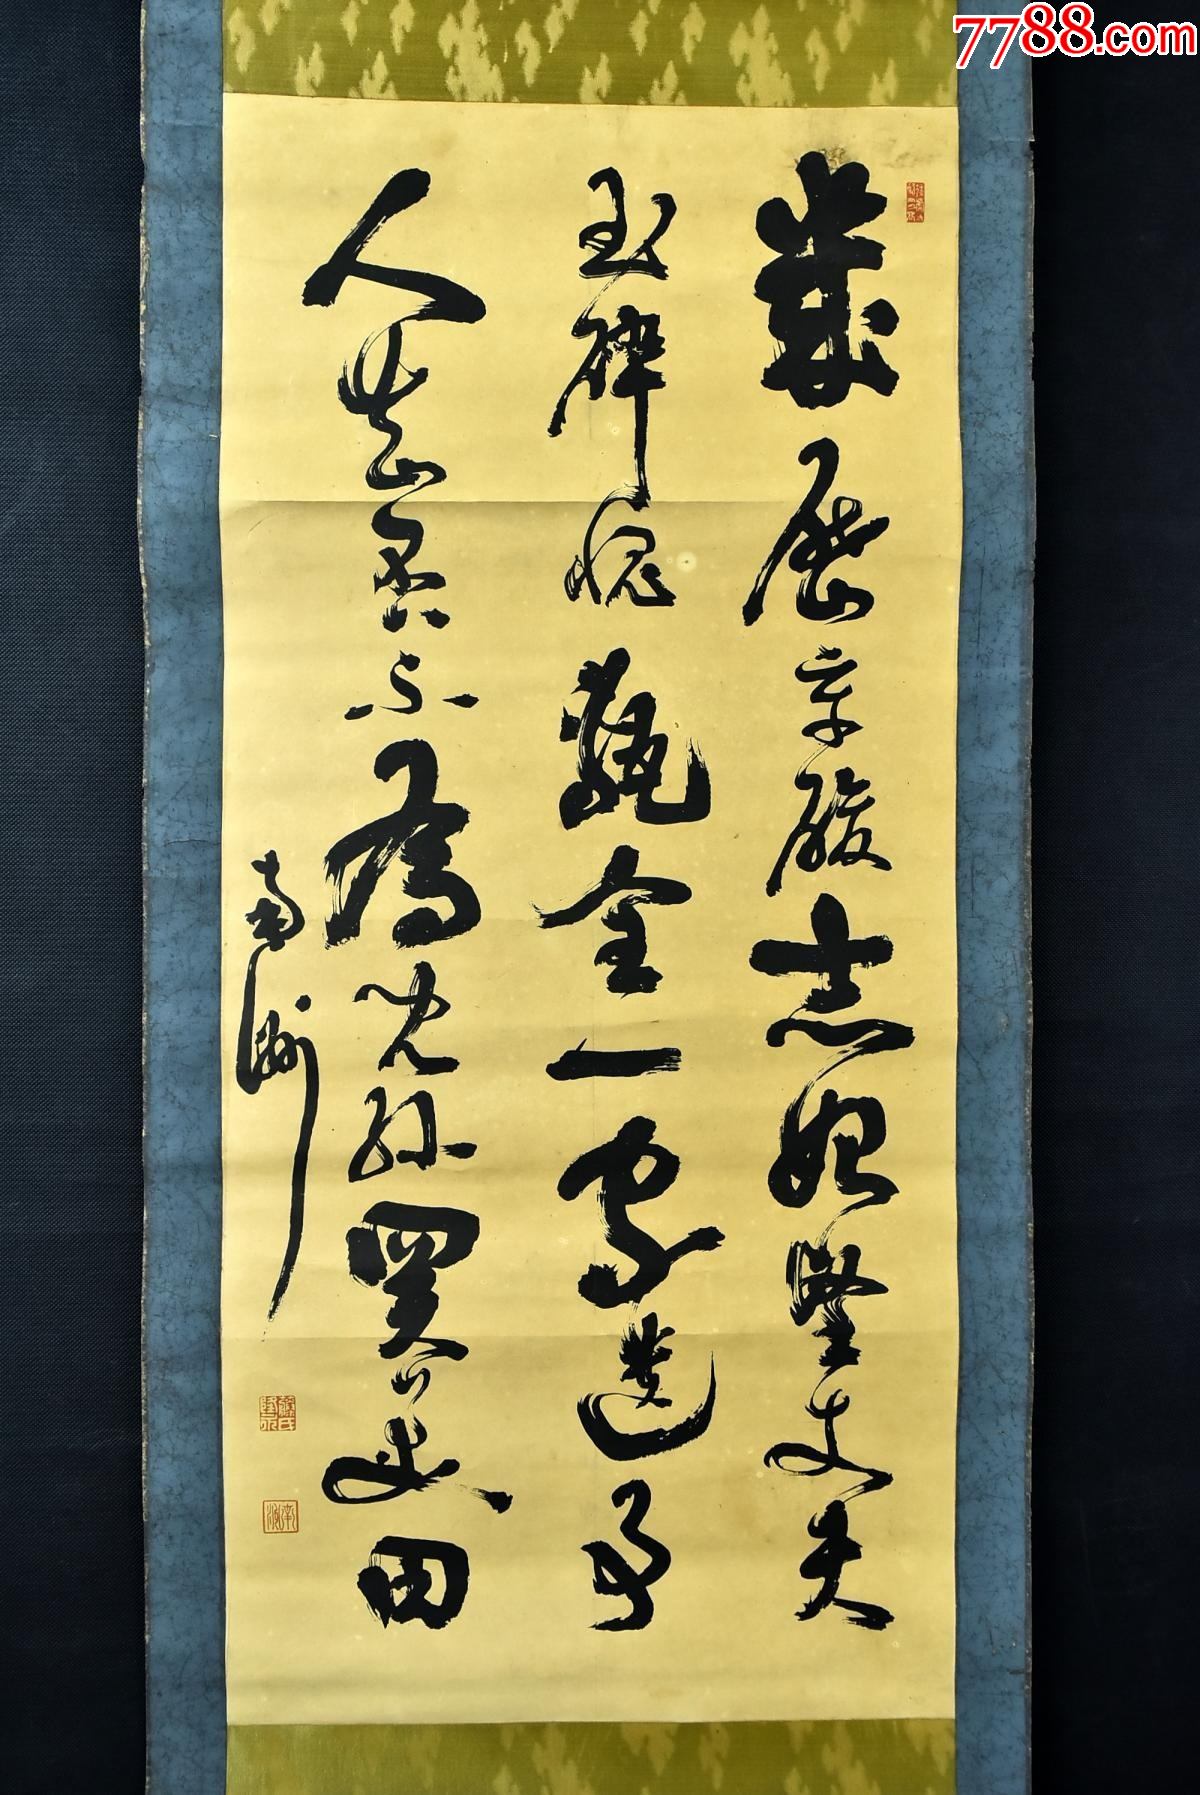 7788.com
幾歷辛酸志始堅丈夫
玉碎愧甎全一家遺事
人知否不為兒孫買美田
南洲